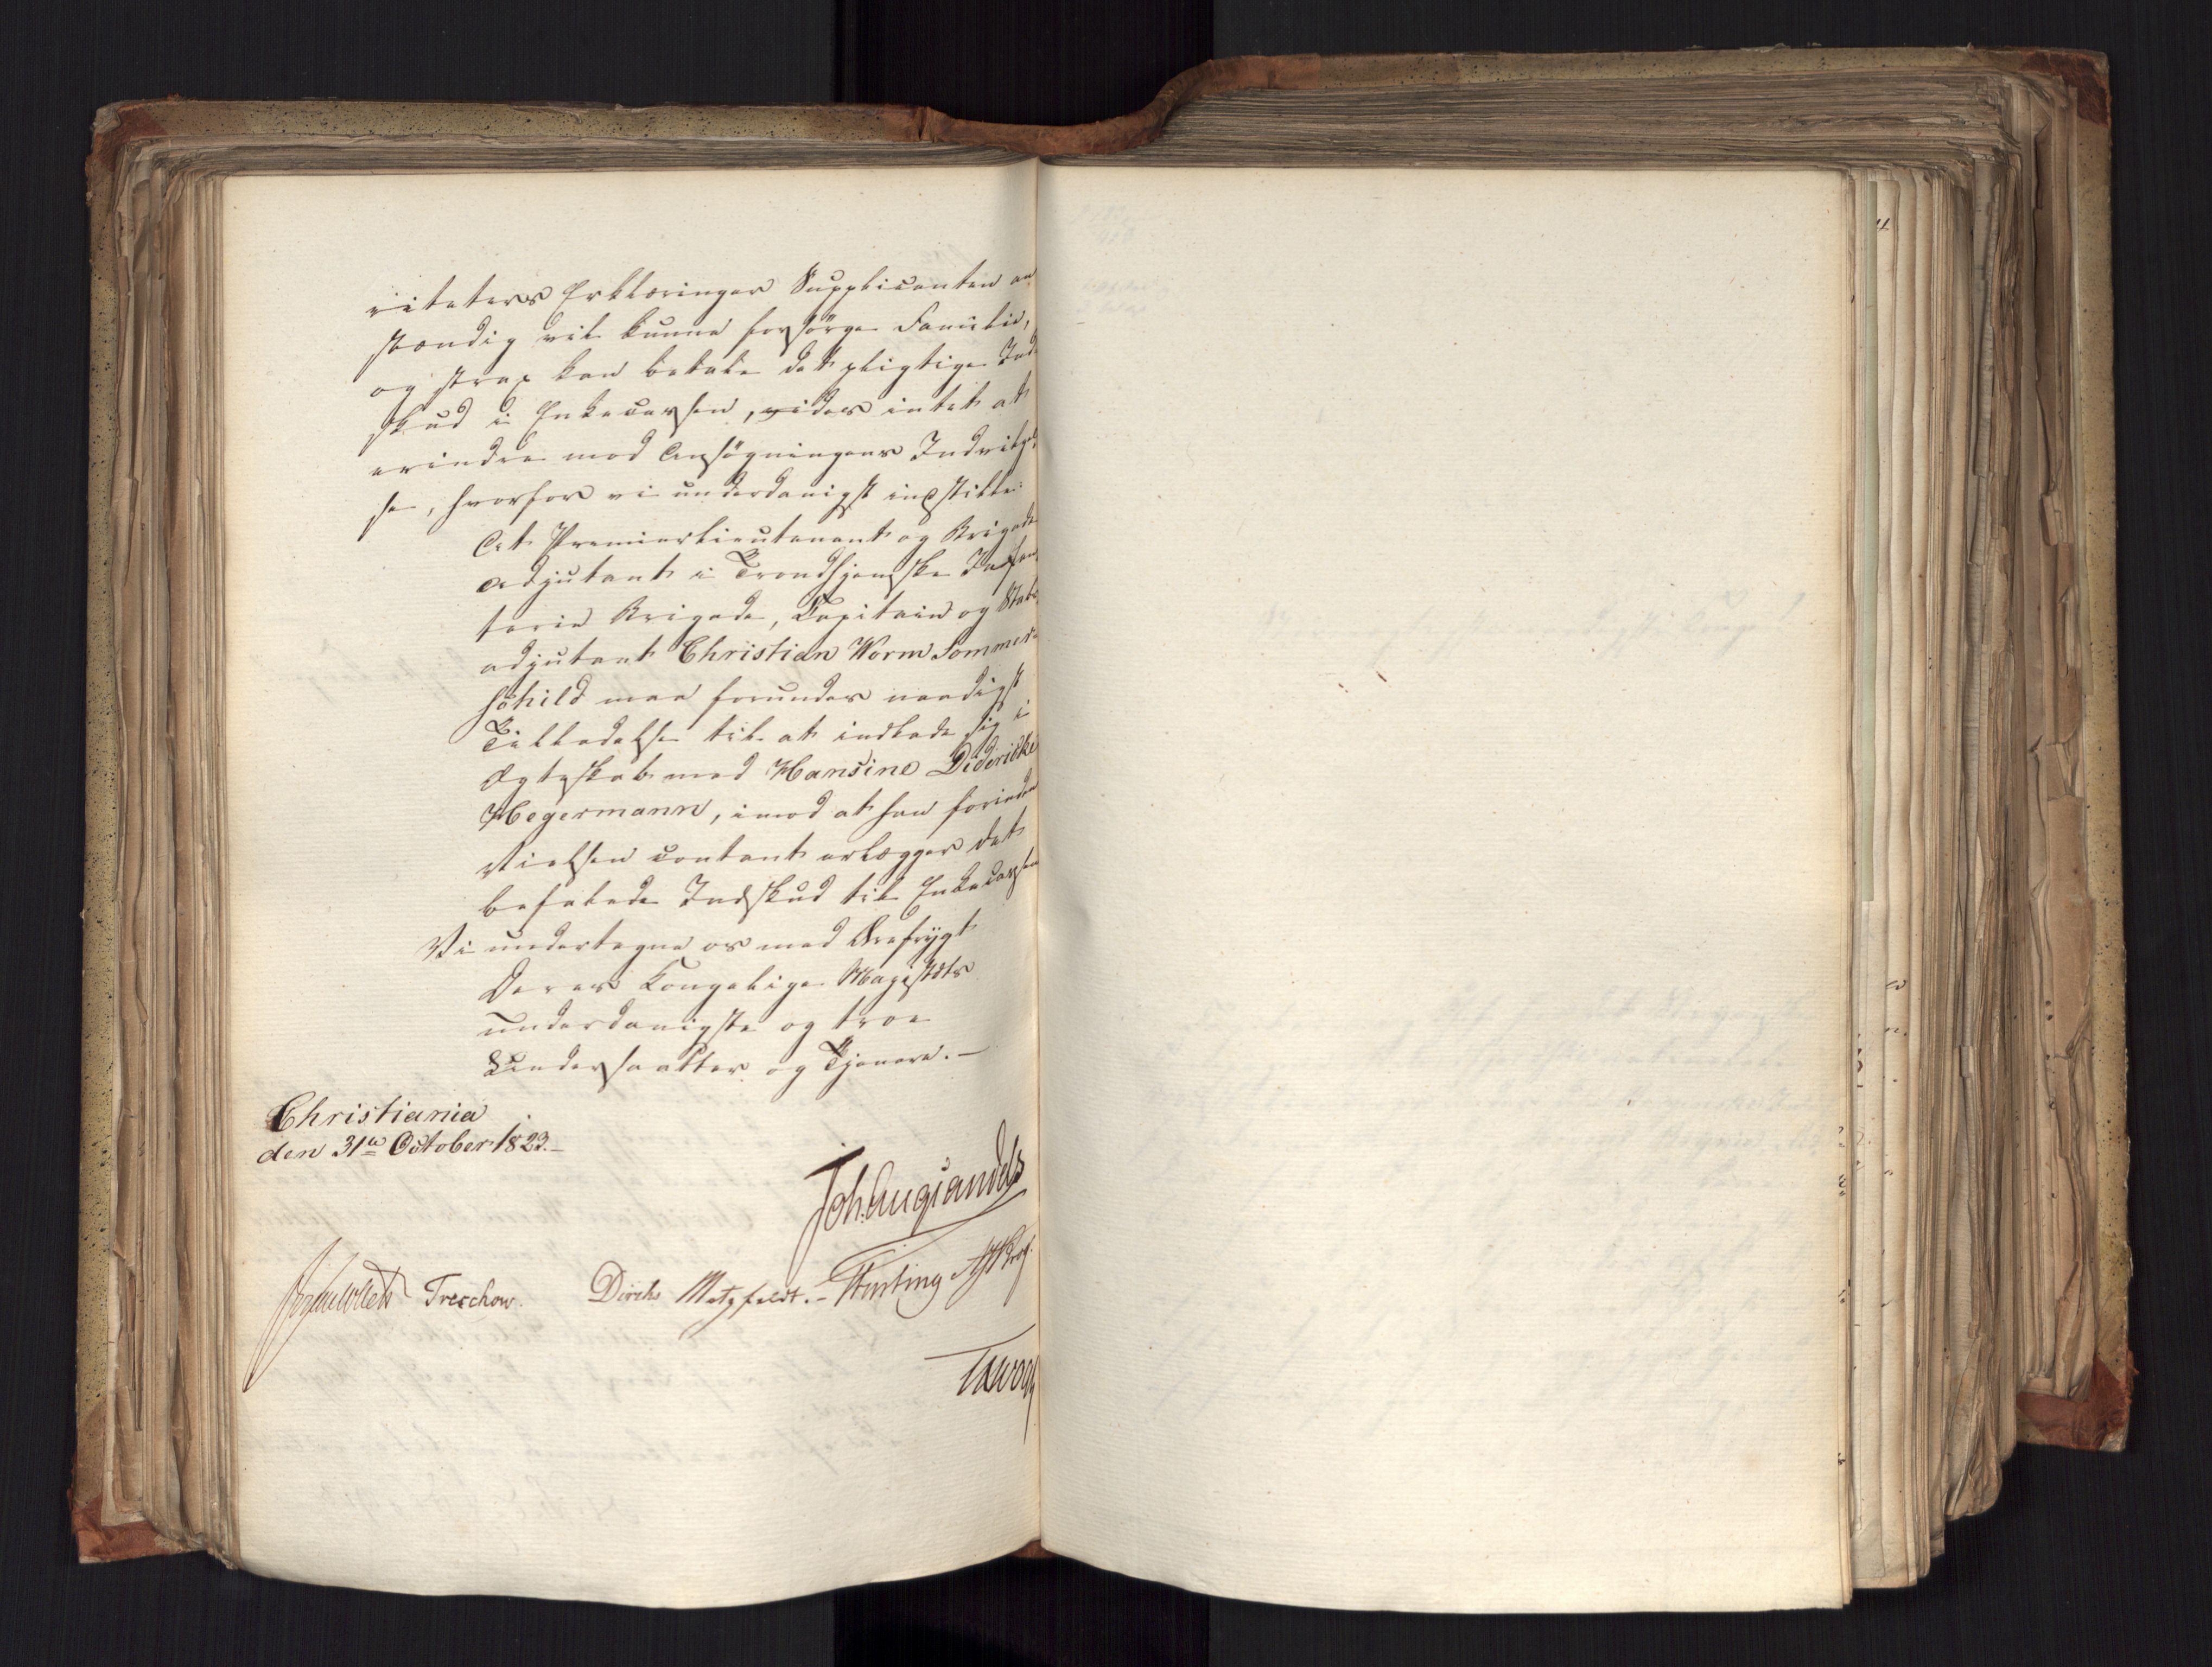 riteters Erklæringer Supplicanten an
stændig vil kunne forsørge Familie,
og strax kan betale det pligtige Ind
skud i Enkecassen, vides intet at
erindre mod Ansøgningens Indvilgel
se, hvorfor vi underdanigst indstille:
At Premierlieutenant og Brigade
adjutant i Trondhjemske Infan
terie Brigade, Capitain og Stabs
adjutant Christian Worm Sommer-
schild maa forundes naadigst
Tilladelse til at indlade sig i
Ægteskab med Hansine Didericke
Hegermann, imod at han forinden
Vielsen contant erlægger det
befalede Indskud til Enkecassen
Vi undertegne os med Ærefrygt
Deres Kongelige Majestæts
underdanigste og troe
Undersaatter og Tjenere.—
Christiania
den 31te October 1823.—
Joh. Aug. Sandels
Treschow. Diriks Motzfeldt.–